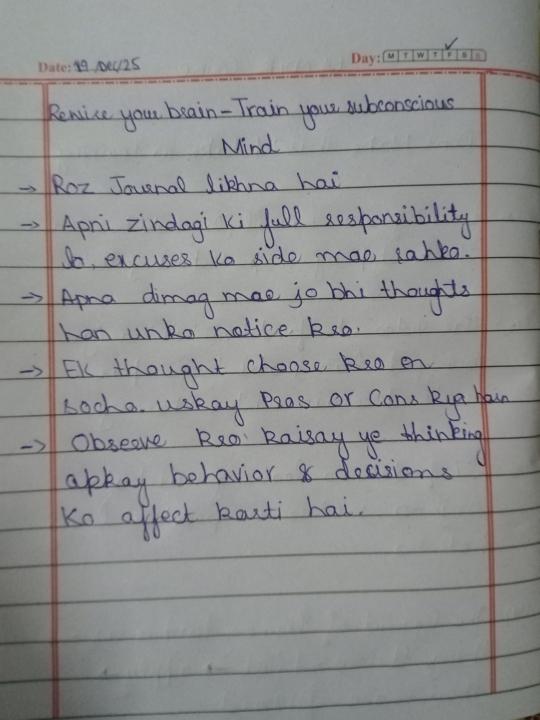 Date: 19/Dec/25
Day: M T W T F S S
Rewire your brain - Train your subconscious
Mind
→ Roz Journal likhna hai
→ Apni zindagi ki full responsibility
lo, excuses ko side mae rakho.
→ Apna dimag mae jo bhi thoughts
han unko notice kro.
→ Ek thought choose kro or
socho. uskay Pros or Cons kya hain
→ Observe kro kaisay ye thinking
apkay behavior & decisions
ko affect karti hai.